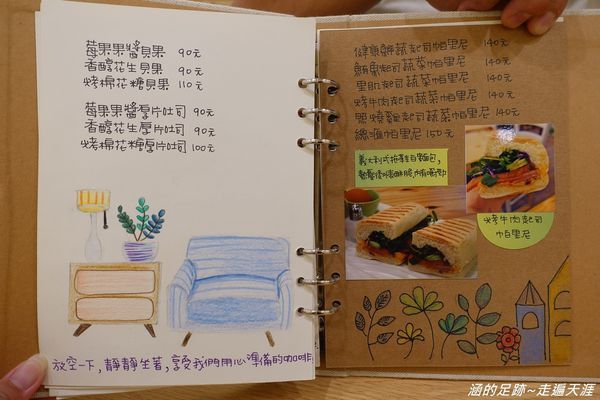 莓果果醬貝果 90元
香醇花生貝果 90元
烤棉花糖貝果 110元
莓果果醬厚片吐司 90元
香醇花生厚片吐司 90元
烤棉花糖厚片吐司 100元
放空一下,靜靜坐著,享受我們用心準備的咖啡
健康鮮蔬起司帕里尼 140元
鮪魚起司蔬菜帕里尼 140元
里肌起司蔬菜帕里尼 140元
烤牛肉起司蔬菜帕里尼 140元
照燒雞起司蔬菜帕里尼 140元
總匯帕里尼 150元
義大利式拖鞋白麵包,
烤牛肉起司
帕里尼
涵的足跡~走遍天涯